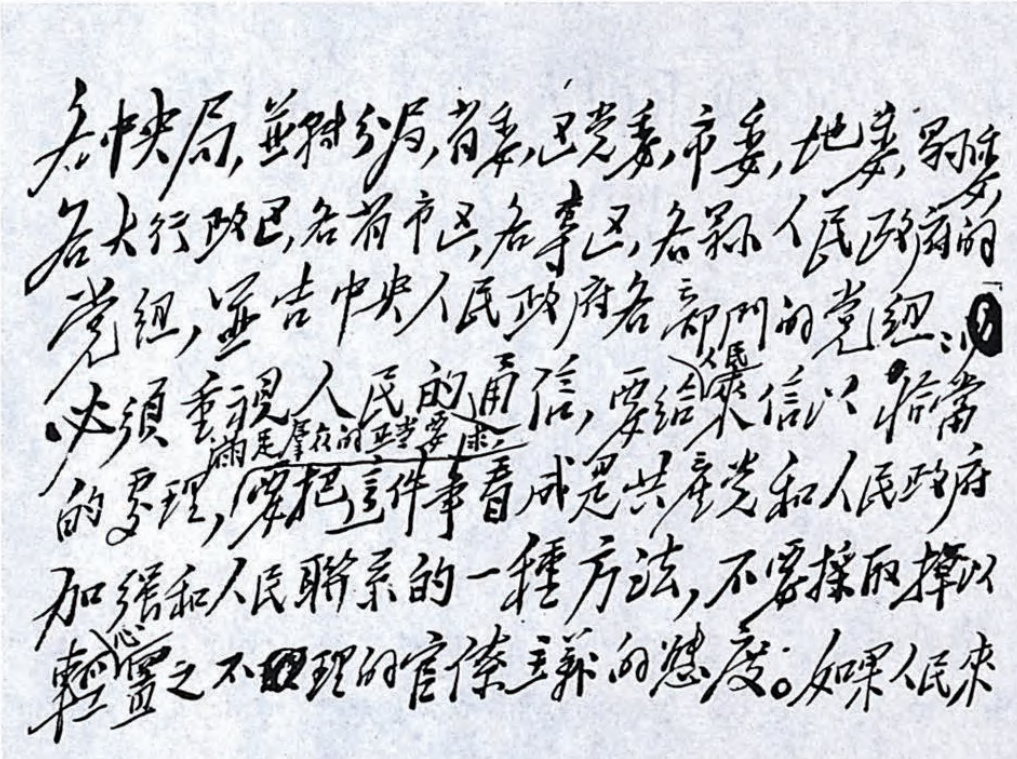 各中央局,並轉分局,省委,区党委,市委,地委,縣委,
各大行政区,各省市区,各專区,各縣人民政府的
党組,並告中央人民政府各部門的党組:
必須重視人民的通信,要給人民來信以恰當
的処理,滿足羣衆的正当要求,要把這件事看成是共產党和人民政府
加强和人民聯系的一種方法,不要採取掉以
輕心置之不理的官僚主義的態度。如果人民來